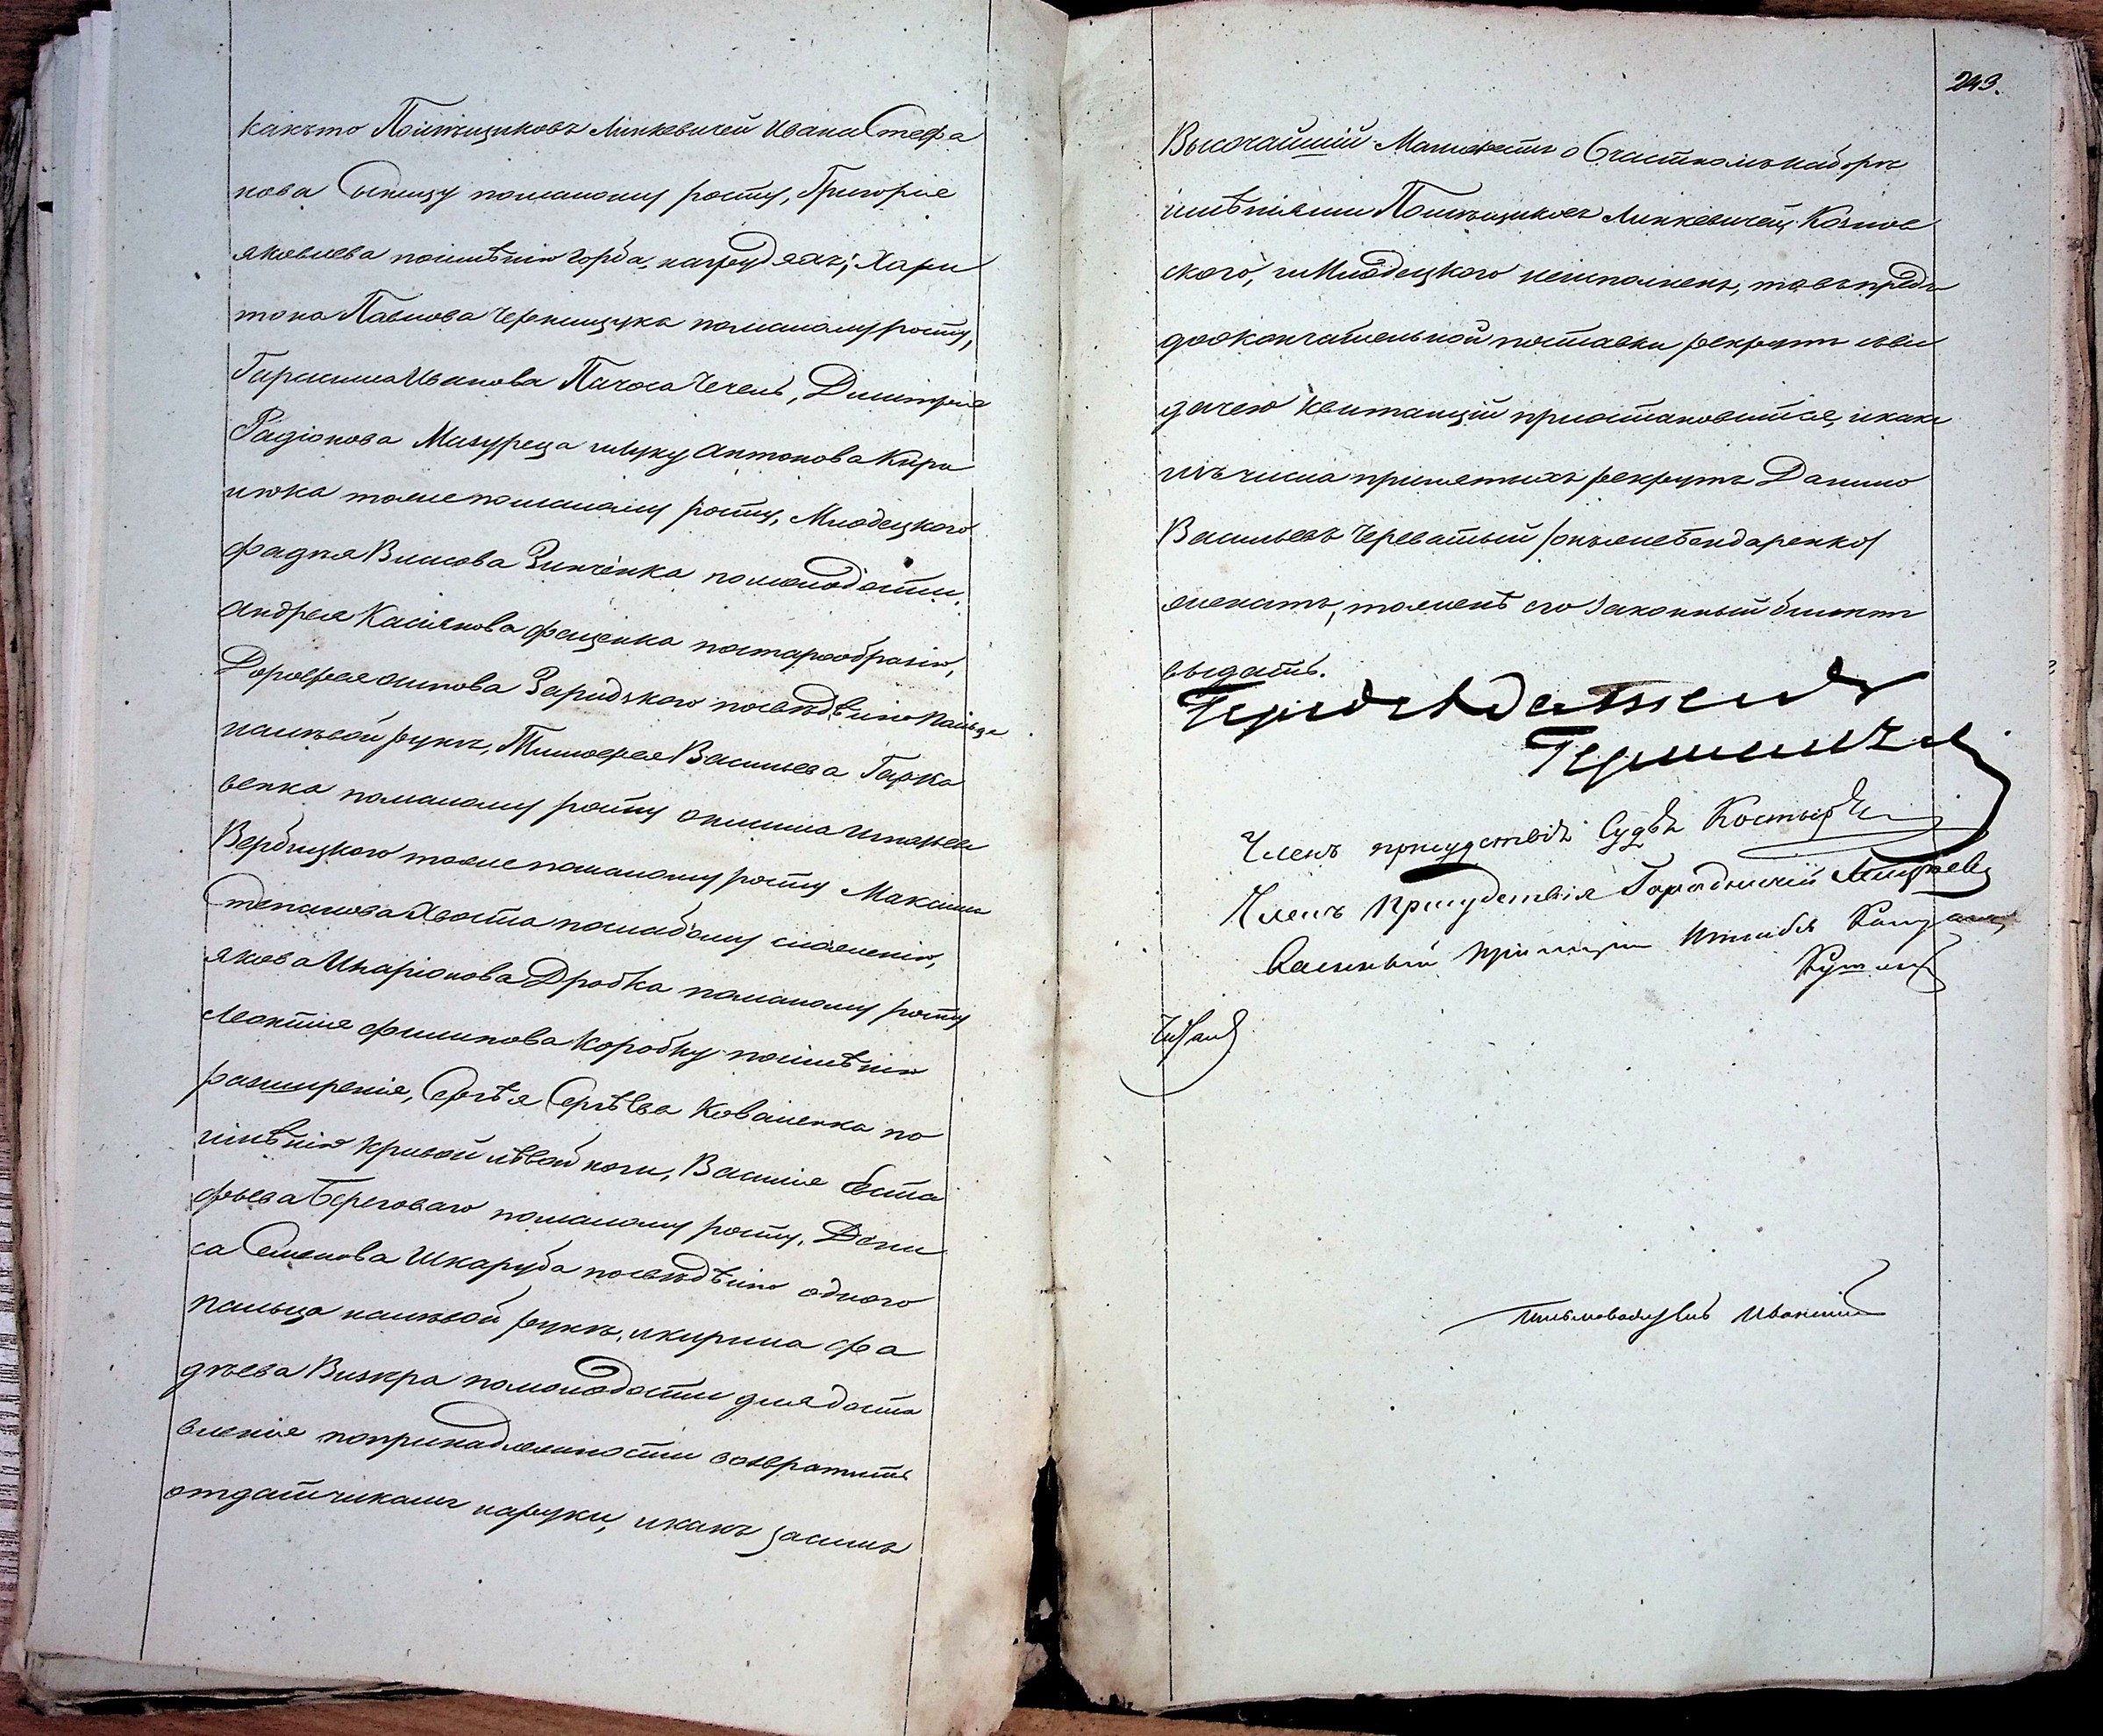 какъто Помѣщиковъ Линкевичей Ивана Стефа
нова помалому росту, Григорія
Яковлева поимѣнію горба, нагрудяхъ; Хари
тона Павлова Черепищука помалому росту,
Гарасима Иванова Чечель, Димитрія
Радіонова Мазуреца илуку Антонова Кири
люка тоже помалому росту, Млодецкого
Фадея Власова Зинченка помолодости,
Андрея Касіянова Фещенка постарообразію,
Дорофея Осипова Зарудскаго посведѣнію пальца
налѣвой рукѣ, Тимофея Васильева Гарка
венка помалому росту Онисима Игнатьева
Вербицкого тоже помалому росту Максима
Степанова Хвоста послабому сложенію,
Якова Иларіонова Дробка помалому росту
Леонтія Филипова Коробку поимѣнію
разширенія, Сергѣя Сергѣева Коваленка по
имѣнію кривой лѣвой ноги, Василія Евста
фьева Береговаго помалому росту, Дени
са Семенова Шкаруба посведѣнію одного
пальца налѣвой рукѣ, икирила Фа
дѣева Визира помолодости длядоста
вленія попринадлежности возвратить
отдатчикамъ наруки, икакъ засимъ
243.
Высочайшій Манифестъ о Счастномъ наборѣ
имѣніями Помѣщиковъ Линкевичей, Козлов
ского, иМлодецкого неисполненъ, товъпредь
доокончательной поставки рекрутъ свы
дачею квитанціи пріостановится, икакъ
изъ числа принятыхъ рекрутъ Данило
Васильевъ Череватый /онъже Бондаренко/
женатъ, тоженѣ его законный билетъ
выдать.
Предсѣдатель
Членъ присудствія Судья
Членъ Присудствія Городничій
Военный Пріемщикъ Штабсъ Капитанъ
Читалъ
Письмоводитель